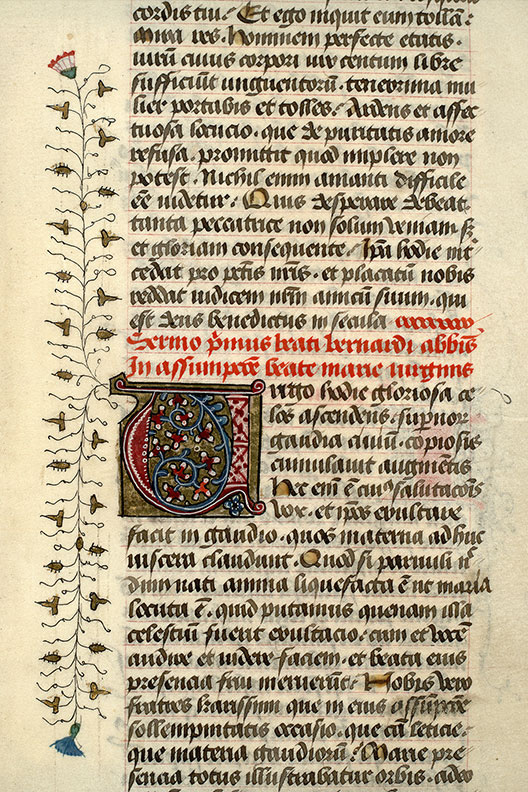 cordis tui. Et ego inquit eum tollã.
mira res. Hominem perfecte etatis.
uirũ cuius corpori uix centum libre
sufficiũt unguentorũ. tenerrima mu
lier portabis et tolles. Ardens et affec
tuosa locucio. que de puritatis amore
refusa. promittit quod implere non
potest. Nichil enim amanti difficile
eẽ uidetur. Quis desperare debeat
tanta peccatrice non solum ueniam sꝫ
et gloriam consequente. Ipã hodie int̾
cedat pro pctĩs nr̃is. et placatũ nobis
reddat iudicem nrm̃ amicũ suum. qui
est deus benedictus in secula
Sermo p̃imus beati bernardi abbĩs
In assumpcõe beate marie uirginis
Virgo hodie gloriosa ce
los ascendens. sup̃nor̃
gaudia ciuiũ. copiosis
cumulauit augmentis
Hec em̃ ẽ cui⁹ salutacõis
uox. et ipos exultare
facit in gaudio. quos materna adhuc
uiscera claudunt. Quod si paruuli n̾
dum nati anima liquefacta ẽ ut maria
locuta ẽ. quid putamus quenam illa
celestiũ fuerit exultacio. cum et uocẽ
audire et uidere faciem. et beata eius
presencia frui meruerũt. Nobis uero
fratres kr̃arissimi que in eius assũpcõe
sollempnitatis occasio. que cã leticie.
que materia gaudiorũ. Marie pre
sencia totus illustrabatur orbis. adeo